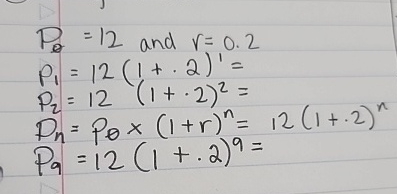 P₀ = 12 and r = 0.2
P₁ = 12 (1 + .2)¹ =
P₂ = 12 (1 + .2)² =
Pₙ = P₀ × (1+r)ⁿ = 12 (1+.2)ⁿ
P₉ = 12 (1 + .2)⁹ =